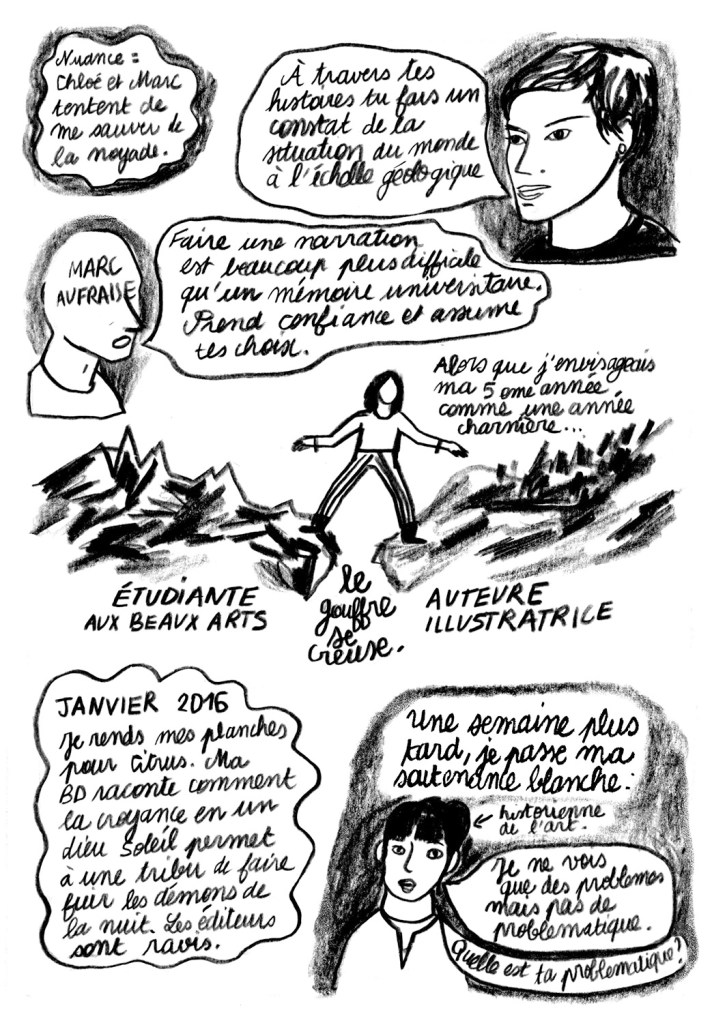 Nuance :
Chloé et Marc
tentent de
me sauver de
la noyade.
À travers tes
histoires tu fais un
constat de la
situation du monde
à l'échelle géologique
MARC
AUFRAISE
Faire une narration
est beaucoup plus difficile
qu'un mémoire universitaire.
Prend confiance et assume
tes choix.
Alors que j'envisageais
ma 5 ème année
comme une année
charnière...
ÉTUDIANTE
AUX BEAUX ARTS
le
gouffre
se
creuse.
AUTEURE
ILLUSTRATRICE
JANVIER 2016
Je rends mes planches
pour Citrus. Ma
BD raconte comment
la croyance en un
dieu Soleil permet
à une tribu de faire
fuir les démons de
la nuit. Les éditeurs
sont ravis.
Une semaine plus
tard, je passe ma
soutenance blanche :
← historienne
de l'art.
Je ne vois
que des problèmes
mais pas de
problématique.
Quelle est ta problématique?